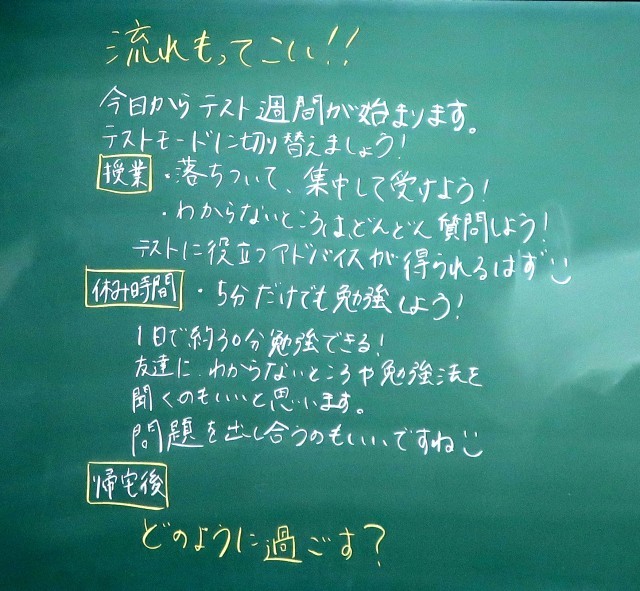 流れもってこい!!
今日からテスト週間が始まります。
テストモードに切り替えましょう!
授業・落ちついて、集中して受けよう!
・わからないところは、どんどん質問しよう!
テストに役立つアドバイスが得られるはず
休み時間・5分だけでも勉強しよう!
1日で約30分勉強できる!
友達に、わからないところや勉強法を
聞くのもいいと思います。
問題を出し合うのもいいですね
帰宅後
どのように過ごす?